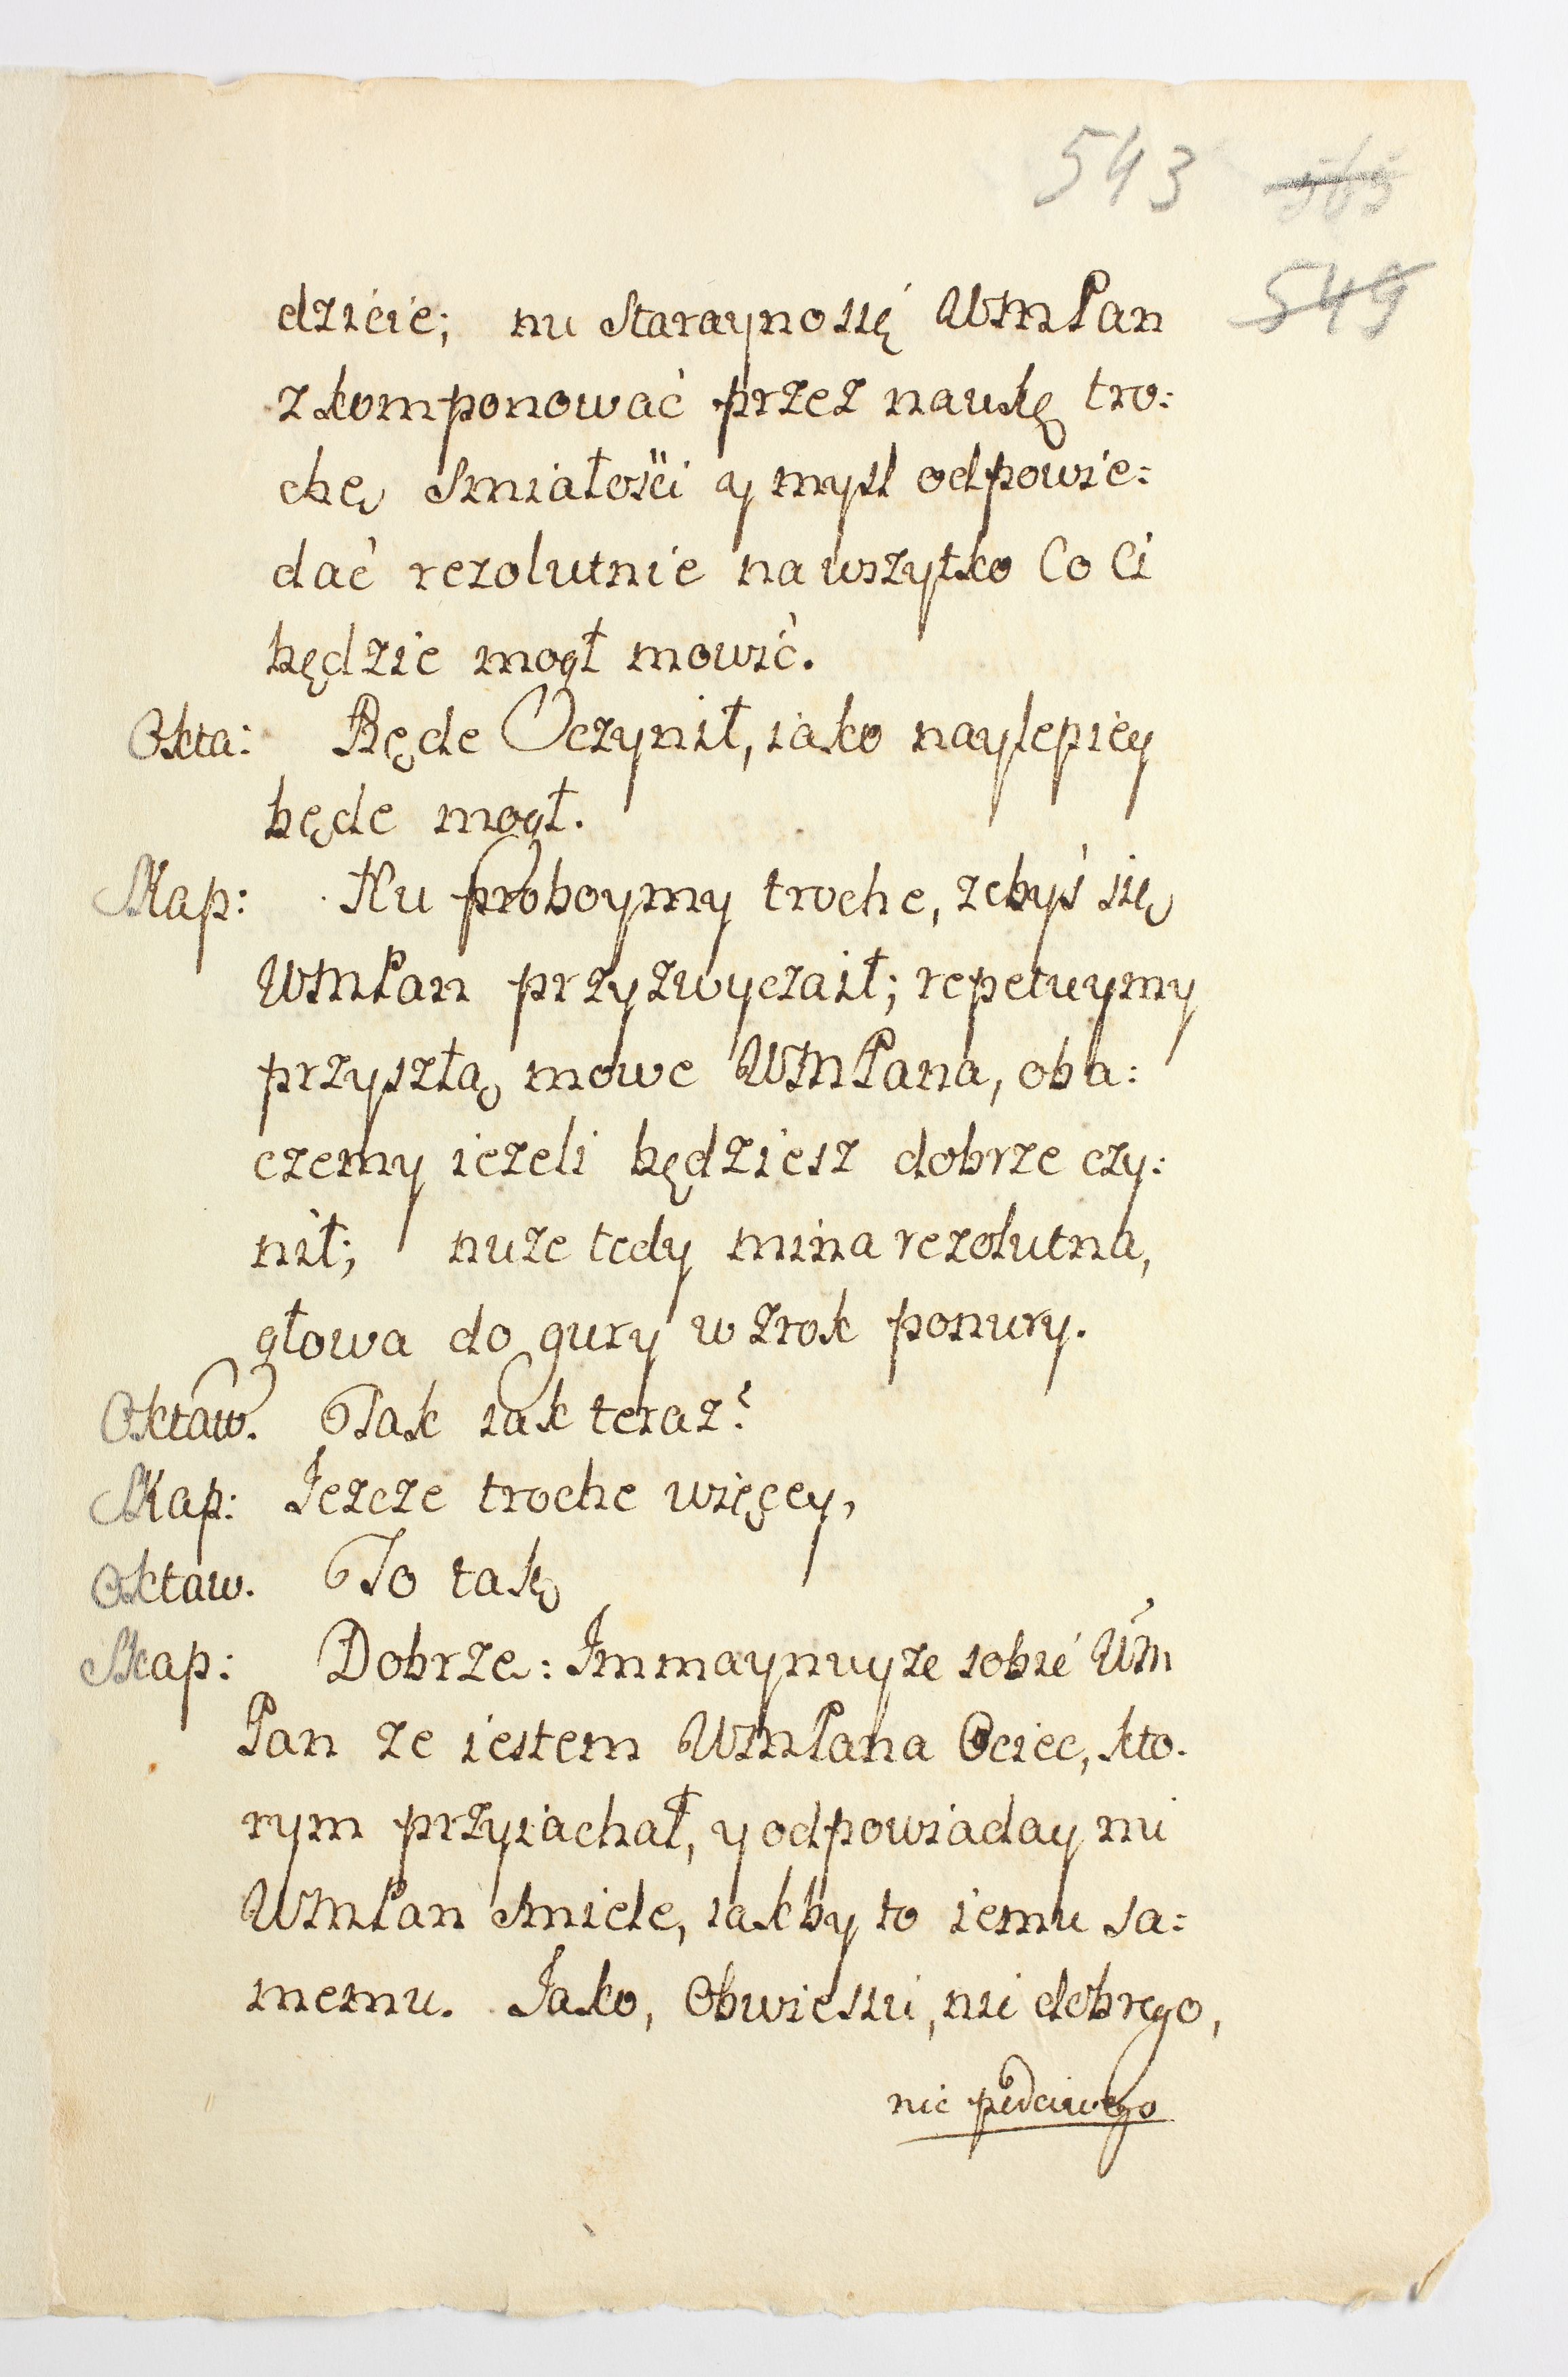 543 565
549
dziecie; nu Staraynosię WMPan
zkomponować przez naukę tro:
chę Smiałości y mysl odpowie:
dać rezolutnie na wszytko Co Ci
będzie mogł mowić.
Okta: Będe Uczynił, iako naylepiey
będe mogł.
Skap: Nu proboymy troche, zebyś się
WMPan przyzwyczaił; repetuymy
przyszłą mowe WMPana, oba:
czemy iezeli będziesz dobrze czy:
nił; nuze tedy mina rezolutna,
głowa do gury wzrok ponury.
Oktaw. Tak iak teraz?
Skap: Jezcze troche więcey,
Oktaw. To tak
Skap: Dobrze: Immaynuyze sobie WM
Pan ze iestem WMPana Ociec, kto.
rym przyiachał, y odpowiaday mi
WMPan Smiele, iakby to iemu sa:
memu. Jako, Obwiesiu, nic dobrego,
nic